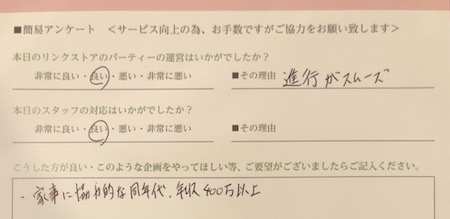 ■簡易アンケート <サービス向上の為、お手数ですがご協力をお願い致します>
本日のリンクストアのパーティーの運営はいかがでしたか?
非常に良い・良い・悪い・非常に悪い ■その理由 進行がスムーズ
本日のスタッフの対応はいかがでしたか?
非常に良い・良い・悪い・非常に悪い ■その理由
こうした方が良い・このような企画をやってほしい等、ご要望がございましたらご記入ください。
・家事に協力的な同年代、年収400万以上